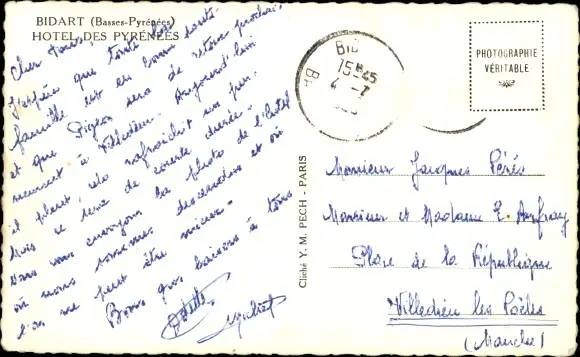 BIDART (Basses-Pyrénées)
HOTEL DES PYRÉNÉES
Cher tous,
J'espère que toute la
famille est en bonne santé
et que Pigeon sera de retour prochai-
nement à Villedieu. Aujourd'hui
il pleut, cela rafraîchit un peu
mais ce sera de courte durée.
Nous vous envoyons la photo de l'hôtel
où nous sommes descendus et où
l'on ne peut être mieux.
Bons gros baisers à tous
BID
15H45
4-7
Cliché Y. M. PECH - PARIS
PHOTOGRAPHIE
VÉRITABLE
Monsieur Jacques Pérés
Monsieur et Madame E. Aufray
Place de la République
Villedieu les Poëles
(Manche)